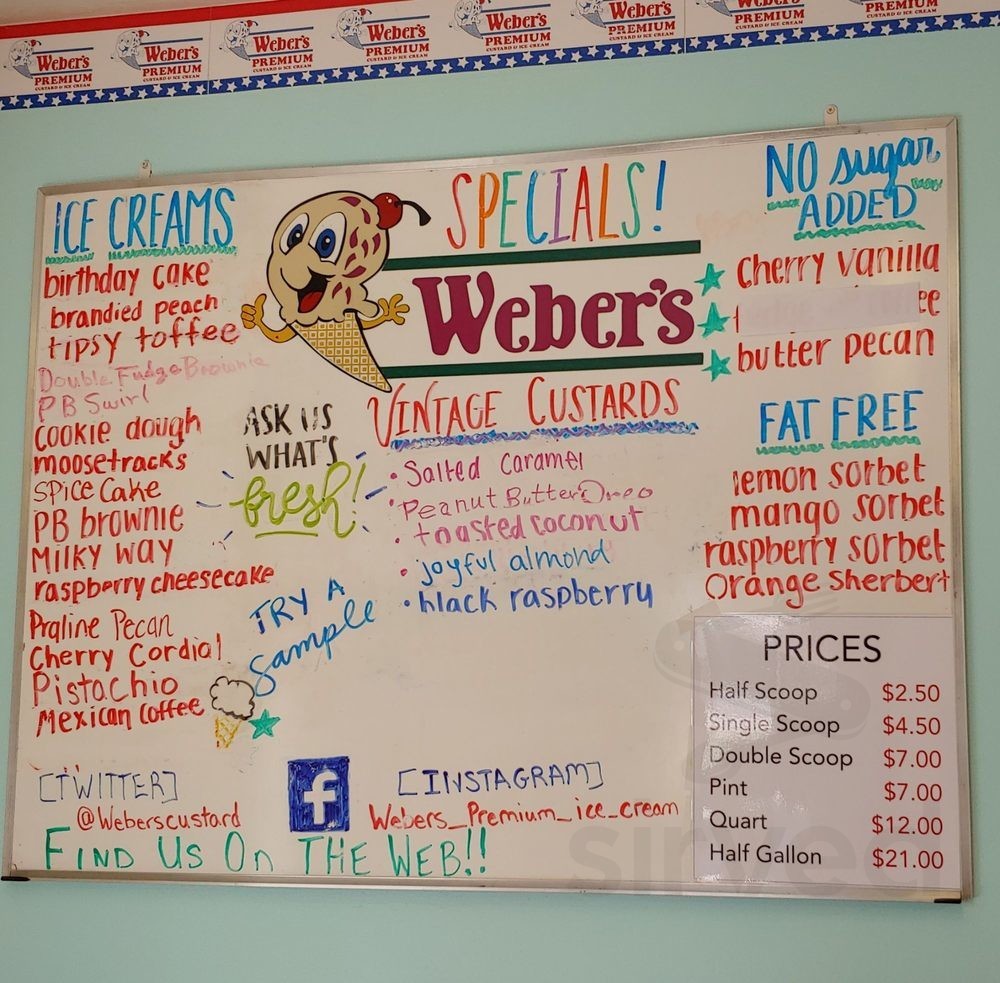 Weber's
PREMIUM
CUSTARD & ICE CREAM
Weber's
PREMIUM
CUSTARD & ICE CREAM
Weber's
PREMIUM
CUSTARD & ICE CREAM
Weber's
PREMIUM
CUSTARD & ICE CREAM
Weber's
PREMIUM
CUSTARD & ICE CREAM
Weber's
PREMIUM
CUSTARD & ICE CREAM
PREMIUM
CUSTARD & ICE CREAM
PREMIUM
ICE CREAMS
birthday cake
brandied peach
tipsy toffee
Double Fudge Brownie
PB Swirl
cookie dough
moosetracks
Spice Cake
PB brownie
Milky way
raspberry cheesecake
Praline Pecan
Cherry Cordial
Pistachio
Mexican Coffee
SPECIALS!
Weber's
ASK US
WHAT'S
fresh!
TRY A
sample
VINTAGE CUSTARDS
• Salted Caramel
• Peanut Butter Oreo
• toasted coconut
• joyful almond
• black raspberry
NO sugar
ADDED
cherry vanilla
butter pecan
FAT FREE
lemon sorbet
mango sorbet
raspberry sorbet
Orange Sherbert
PRICES
Half Scoop $2.50
Single Scoop $4.50
Double Scoop $7.00
Pint $7.00
Quart $12.00
Half Gallon $21.00
[TWITTER]
@Weberscustard
f
[INSTAGRAM]
Webers_Premium_ice_cream
FIND US ON THE WEB!!
sirved